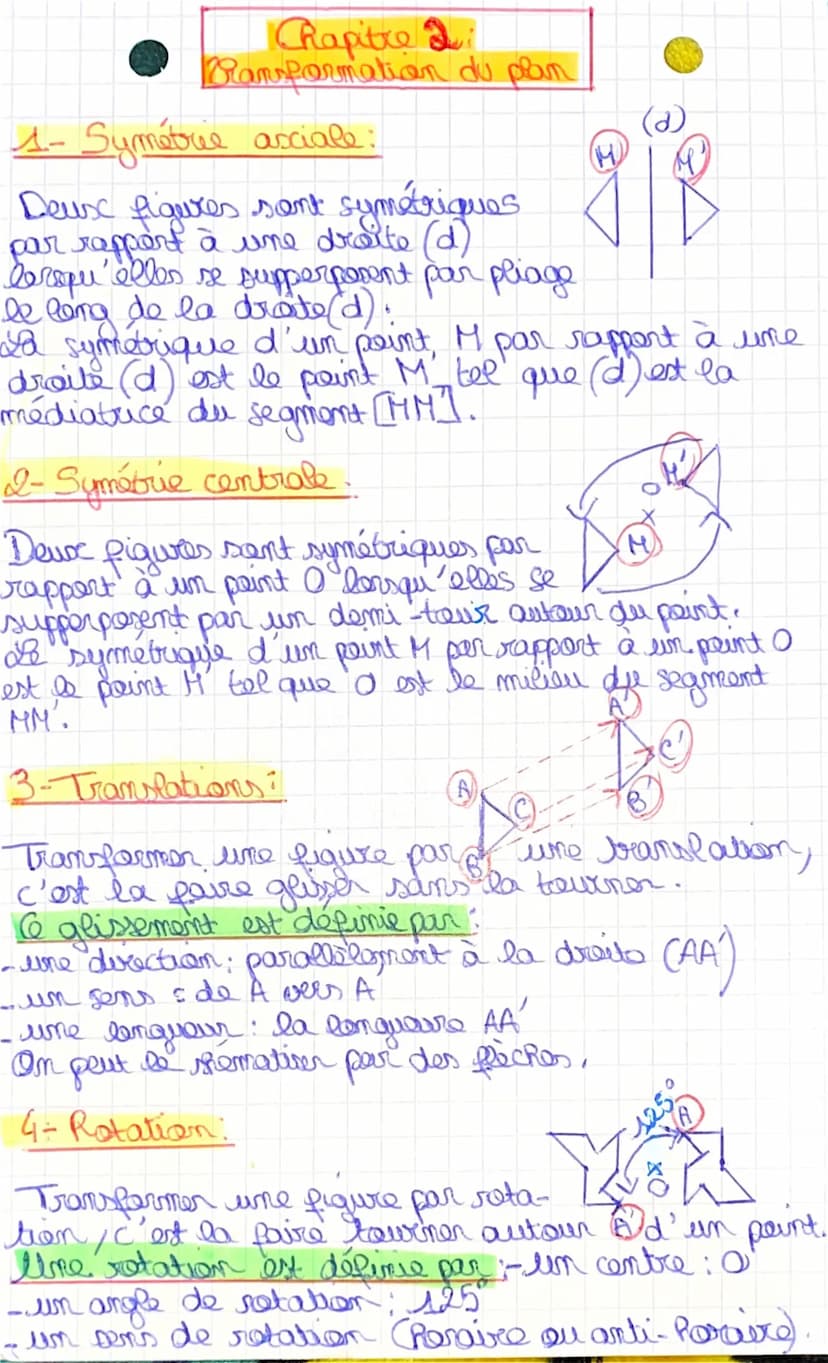 Chapitre 2:
Transformation du plan
1- Symétrie asciale:
(d)
M
M'
Deusc figures sont symétriques
par rapport à une droite (d)
lorsqu'elles se supperposent par pliage
le long de la droite (d).
La symétrique d'un point, M par rapport à une
droite (d) est le point M' tel que (d) est la
médiatrice du segment [MM'].
2- Symétrie centrale.
M'
O
M
Deusc figures sont symétriques par
rapport à un point O lorsqu'elles se
supperposent par un demi-tour autour du point.
Le symétrique d'un point M par rapport à un point O
est le point M' tel que O est le milieu du segment
MM'.
3- Translations:
A
B
C
A'
B'
C'
Transformer une figure par une translation,
c'est la faire glisser sans la tourner.
Ce glissement est définie par:
- une direction: parallèlement à la droite (AA')
- un sens: de A vers A'
- une longueur: la longueure AA'
On peut le shématiser par des flèches.
4- Rotation:
125°
A
O
A'
Transformer une figure par rota-
tion, c'est la faire tourner autour d'un point.
Une rotation est définie par: - un centre: O
- un angle de rotation: 125°
- un sens de rotation (horaire ou anti-horaire).